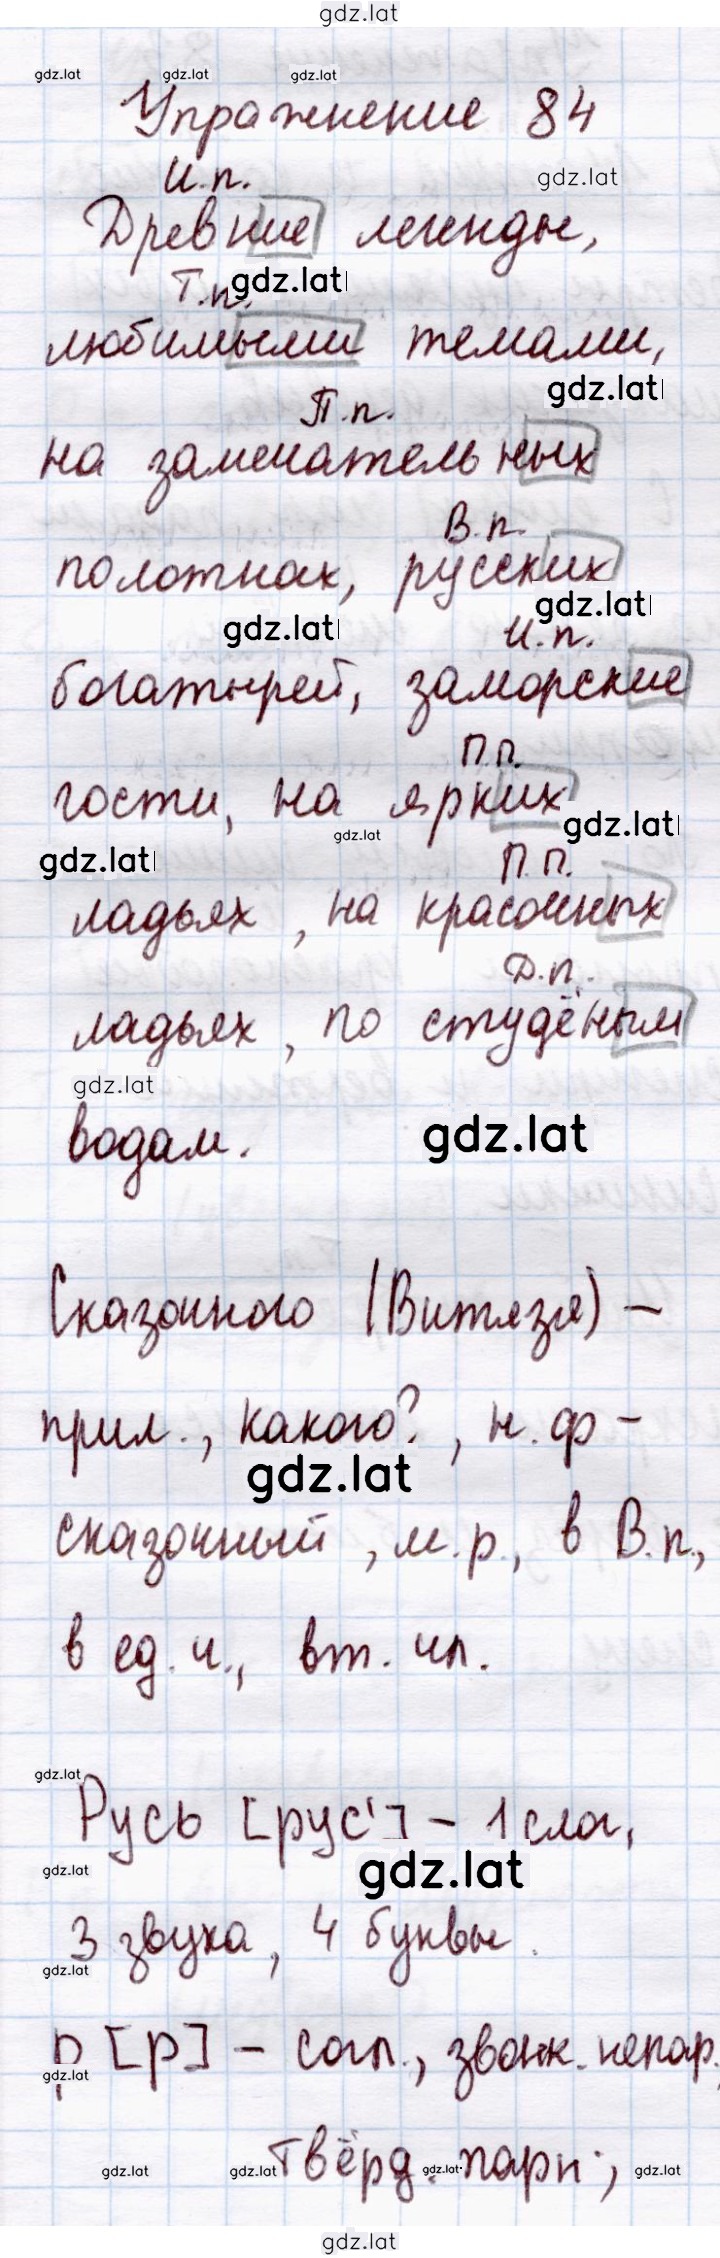 gdz.lat
gdz.lat gdz.lat gdz.lat
Упражнение 84
И.п. gdz.lat
Древние легенды,
Т.п. gdz.lat
любимыми темами,
gdz.lat
П.п.
на замечательных
В.п.
полотнах, русских
gdz.lat gdz.lat
И.п.
богатырей, заморские
П.п.
гости, на ярких
gdz.lat gdz.lat gdz.lat
П.п.
ладьях, на красочных
Д.п.
ладьях, по студёным
gdz.lat
водам. gdz.lat
Сказочного (Витязя) –
прил., какого?, н. ф –
gdz.lat
сказочный, м.р., в В.п.,
в ед. ч., вт. чл.
gdz.lat
Русь [рус'] – 1 слог,
gdz.lat gdz.lat
3 звука, 4 буквы.
gdz.lat
р [р] – согл., звонк. непар.,
gdz.lat
твёрд. парн.,
gdz.lat gdz.lat gdz.lat gdz.lat
gdz.lat